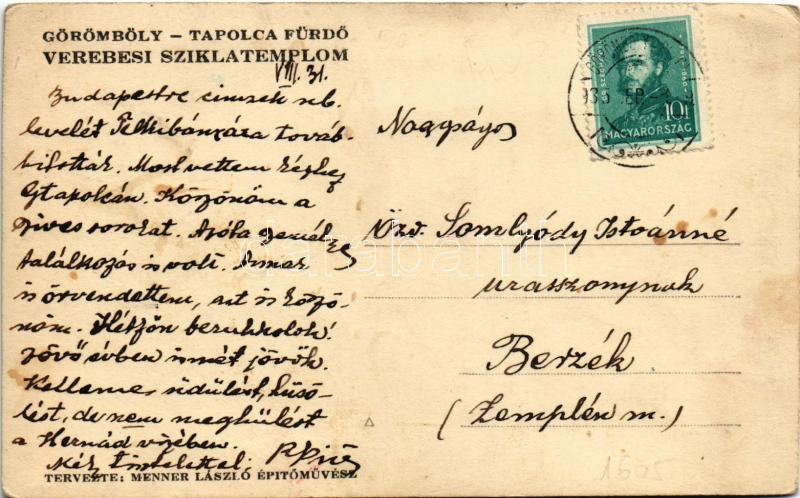 GÖRÖMBÖLY – TAPOLCA FÜRDŐ
VEREBESI SZIKLATEMPLOM
VIII. 31.
Budapestre címzett
levelét Telkibányára továb-
bították. Most vettem kézhez
Gtapolcán. Köszönöm a
szíves sorokat. Azóta személyes
találkozás is volt. Annak
is örvendettem, azt is köszö-
nöm. Hétfőn berukkolok!
Jövő évben ismét jövök.
Kellemes üdülést, hűsö-
lést, de nem meghűlést
a Hernád vizében.
Kéz tisztelettel
TERVEZTE: MENNER LÁSZLÓ ÉPITŐMŰVÉSZ
101
MAGYARORSZÁG
Nagyságos
Özv. Somlyódy Istvánné
urasszonynak
Berzék
(Zemplén m.)
darabanth
1605